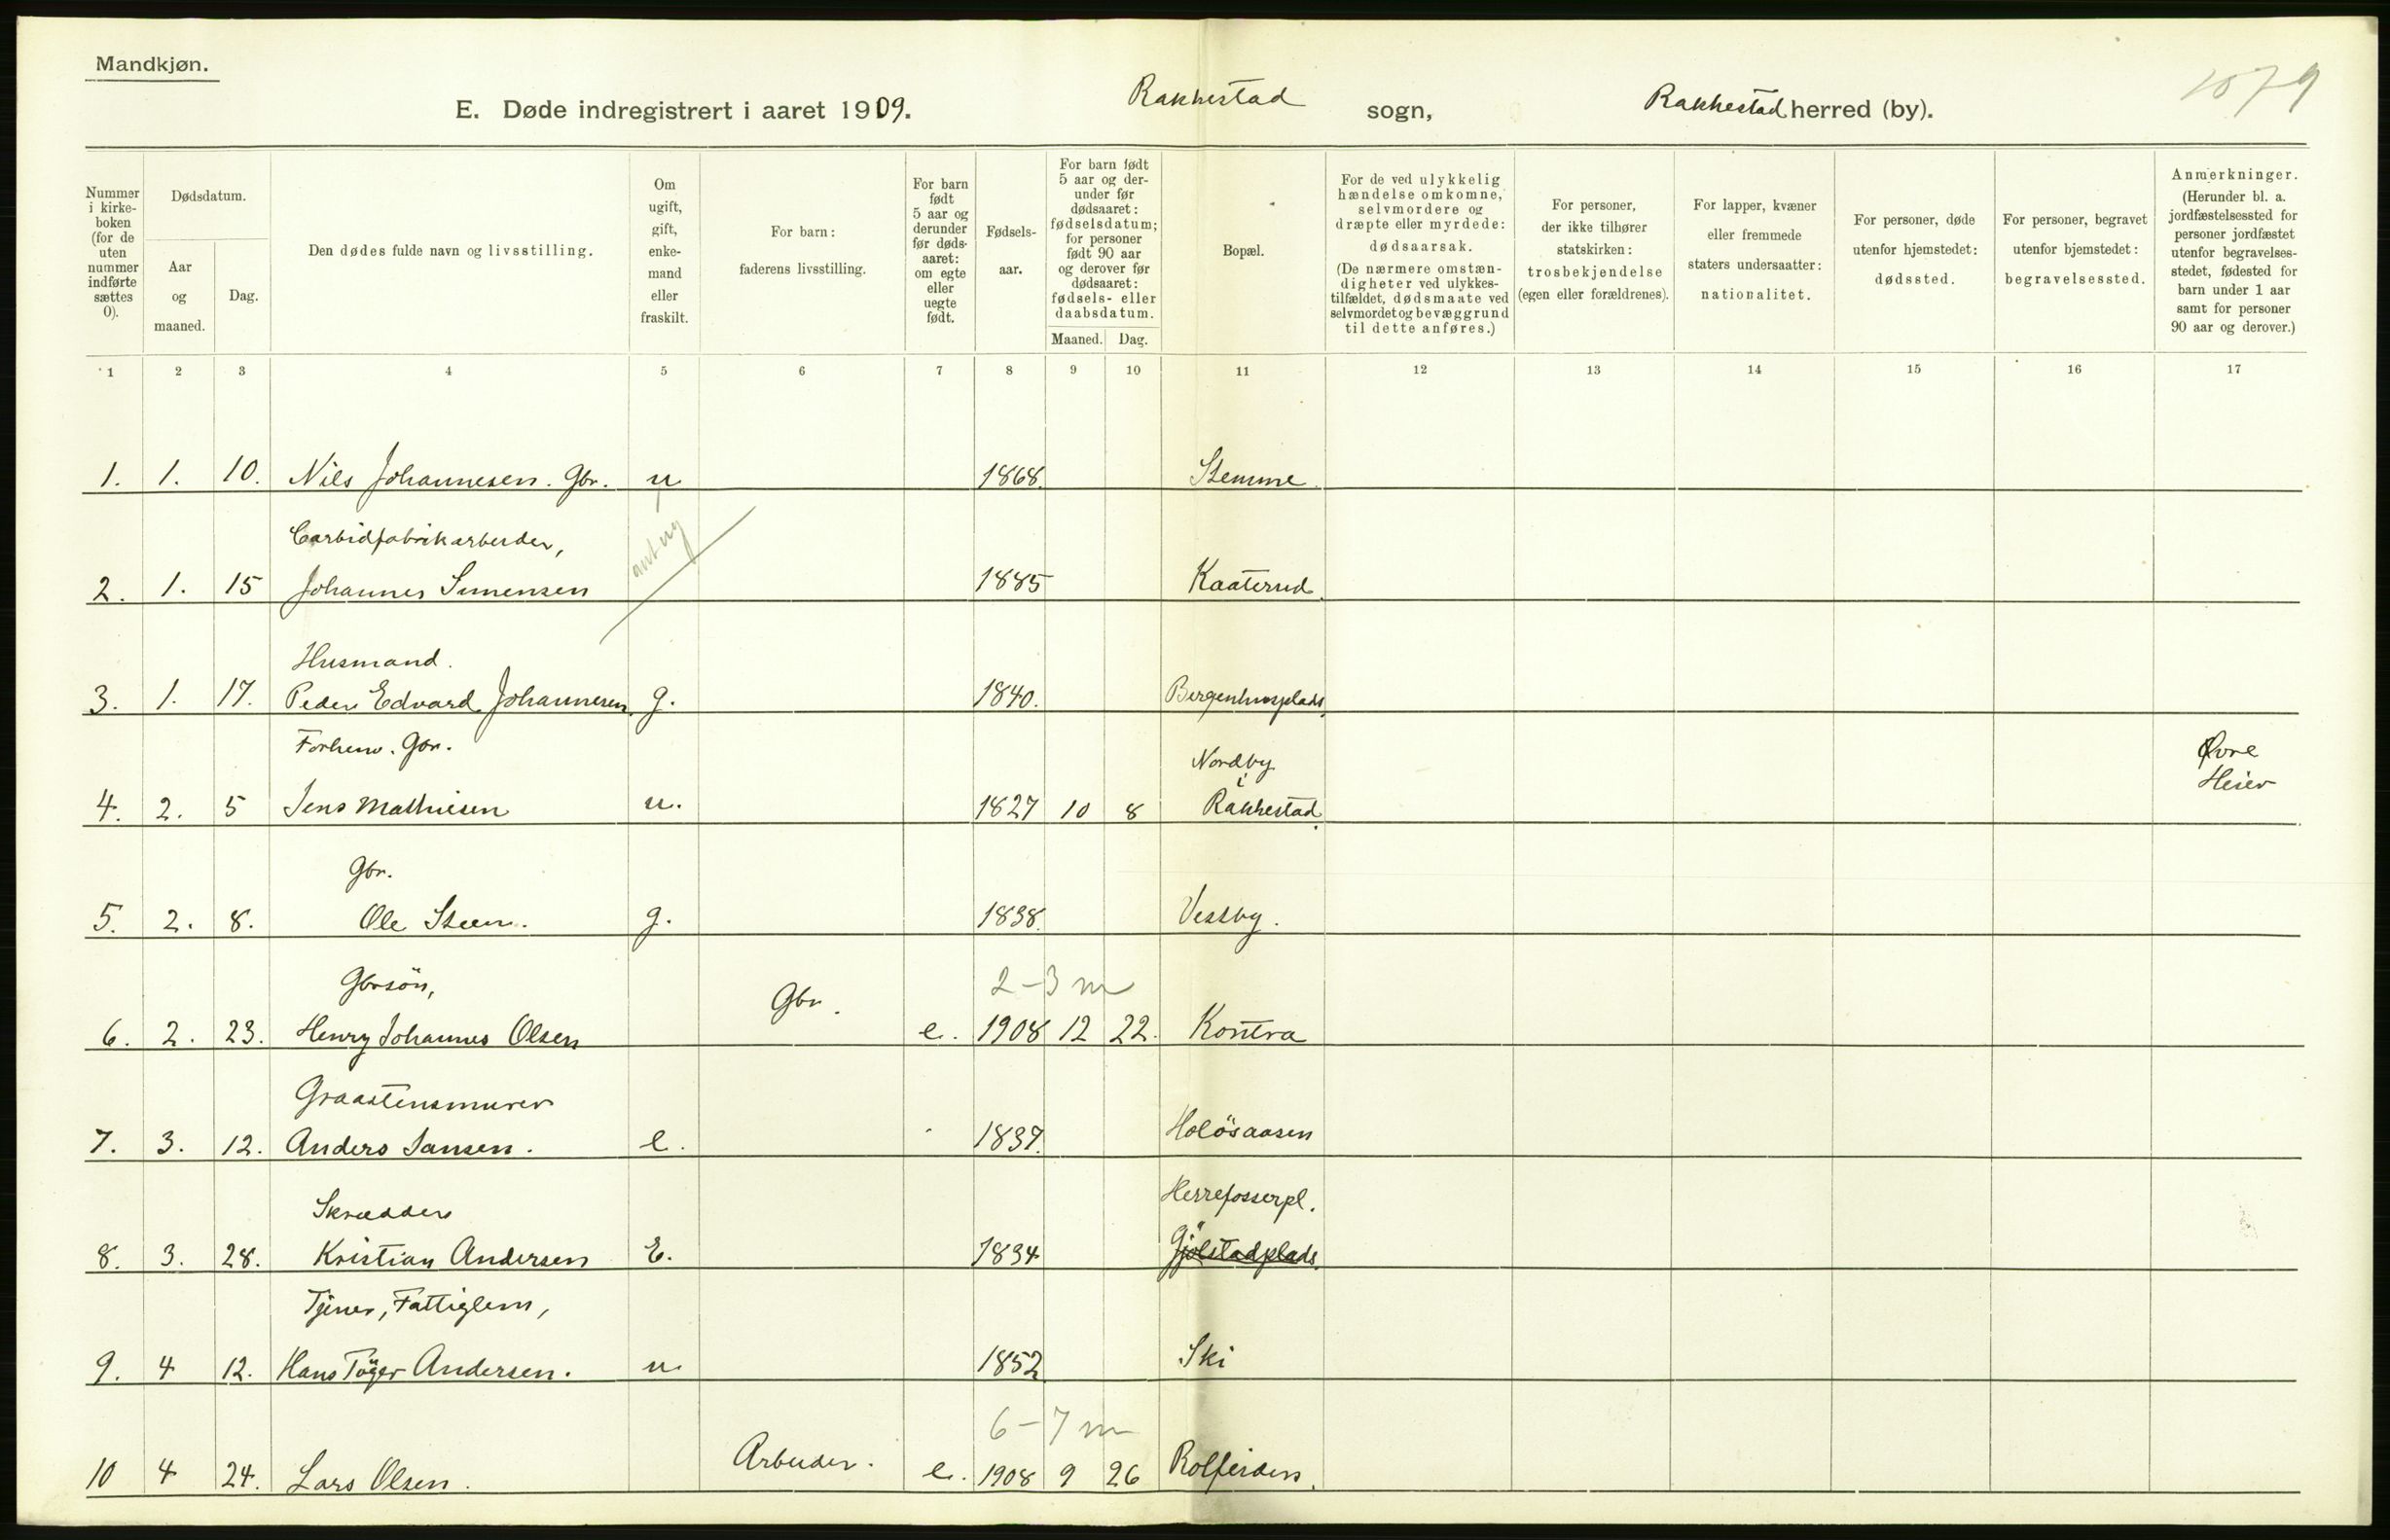 Mandkjøn.
1579
E. Døde indregistrert i aaret 1909. Rakkestad sogn, Rakkestad herred (by).
Nummer i kirke-boken (for de uten nummer indførte sættes 0).
Dødsdatum.
Aar og maaned.
Dag.
Den dødes fulde navn og livsstilling.
Om ugift, gift, enke-mand eller fraskilt.
For barn: faderens livsstilling.
For barn født 5 aar og derunder før døds-aaret: om egte eller uegte født.
Fødsels-aar.
For barn født 5 aar og der-under før dødsaaret: fødselsdatum; for personer født 90 aar og derover før dødsaaret: fødsels- eller daabsdatum.
Maaned. Dag.
Bopæl.
For de ved ulykkelig hændelse omkomne, selvmordere og dræpte eller myrdede: dødsaarsak. (De nærmere omstæn-digheter ved ulykkes-tilfældet, dødsmaate ved selvmordet og bevæggrund til dette anføres.)
For personer, der ikke tilhører statskirken: trosbekjendelse (egen eller forældrenes).
For lapper, kvæner eller fremmede staters undersaatter: nationalitet.
For personer, døde utenfor hjemstedet: dødssted.
For personer, begravet utenfor bjemstedet: begravelsessted.
Anmerkninger. (Herunder bl. a. jordfæstelsessted for personer jordfæstet utenfor begravelses-stedet, fødested for barn under 1 aar samt for personer 90 aar og derover.)
1 2 3 4 5 6 7 8 9 10 11 12 13 14 15 16 17
1. 1. 10. Nils Johannesen. Gbr. u 1868. Stemme.
Carbidfabrikarbeider,
ant ug
2. 1. 15 Johannes Simensen 1885 Kaaterud.
Husmand.
3. 1. 17. Peder Edvard Johannesen. g. 1840. Bergenhusplads.
Forhenv. Gbr. Nordby Øvre
i Heier
4. 2. 5 Jens Mathiesen u. 1827 10 8 Rakkestad.
Gbr.
5. 2. 8. Ole Steen. g. 1838. Vestby.
Gbrsön, 2-3 m
Gbr.
6. 2. 23. Henry Johannes Olsen e. 1908 12 22. Kontra
Graastensmurer
7. 3. 12. Anders Jansen. e. 1837. Holösaasen
Skrædder Herrefosserpl.
8. 3. 28. Kristian Andersen E. 1834 Gjölstadplads.
Tjener, Fattiglem,
9. 4 12. Hans Töger Andersen. u. 1852. Ski
6-7 m
10 4 24. Lars Olsen. Arbeider. e. 1908 9 26 Rolfeiden.